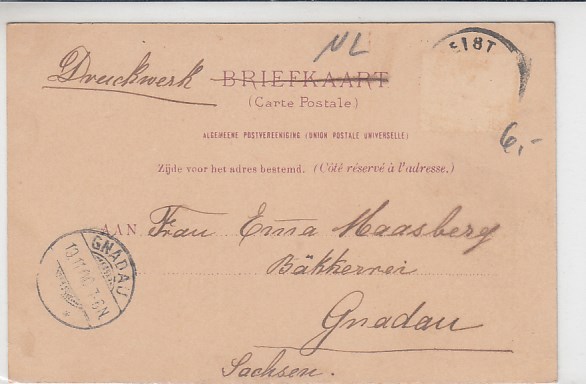 NL
EIST
Druckwerk BRIEFKAART
(Carte Postale)
6,-
ALGEMEENE POSTVEREENIGING (UNION POSTALE UNIVERSELLE)
Zijde voor het adres bestemd. (Côté réservé à l'adresse.)
AAN Frau Erna Maasberg
Bäkkerrei
GNADAU
13.11.00. 7-8N.
Gnadau
Sachsen.